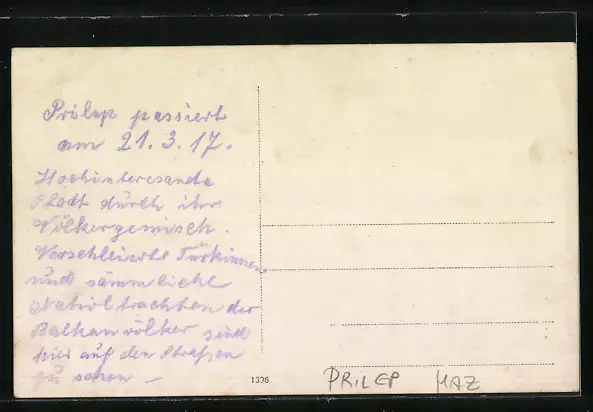 Prilep passiert
am 21.3.17.
Hochinteresante
Stadt durch ihr
Völkergemisch.
Verschleierte Türkinnen
und sämmtliche
Nationltrachten der
Balkanvölker sind
hier auf den Straßen
zu sehen —
1306
PRILEP MAZ